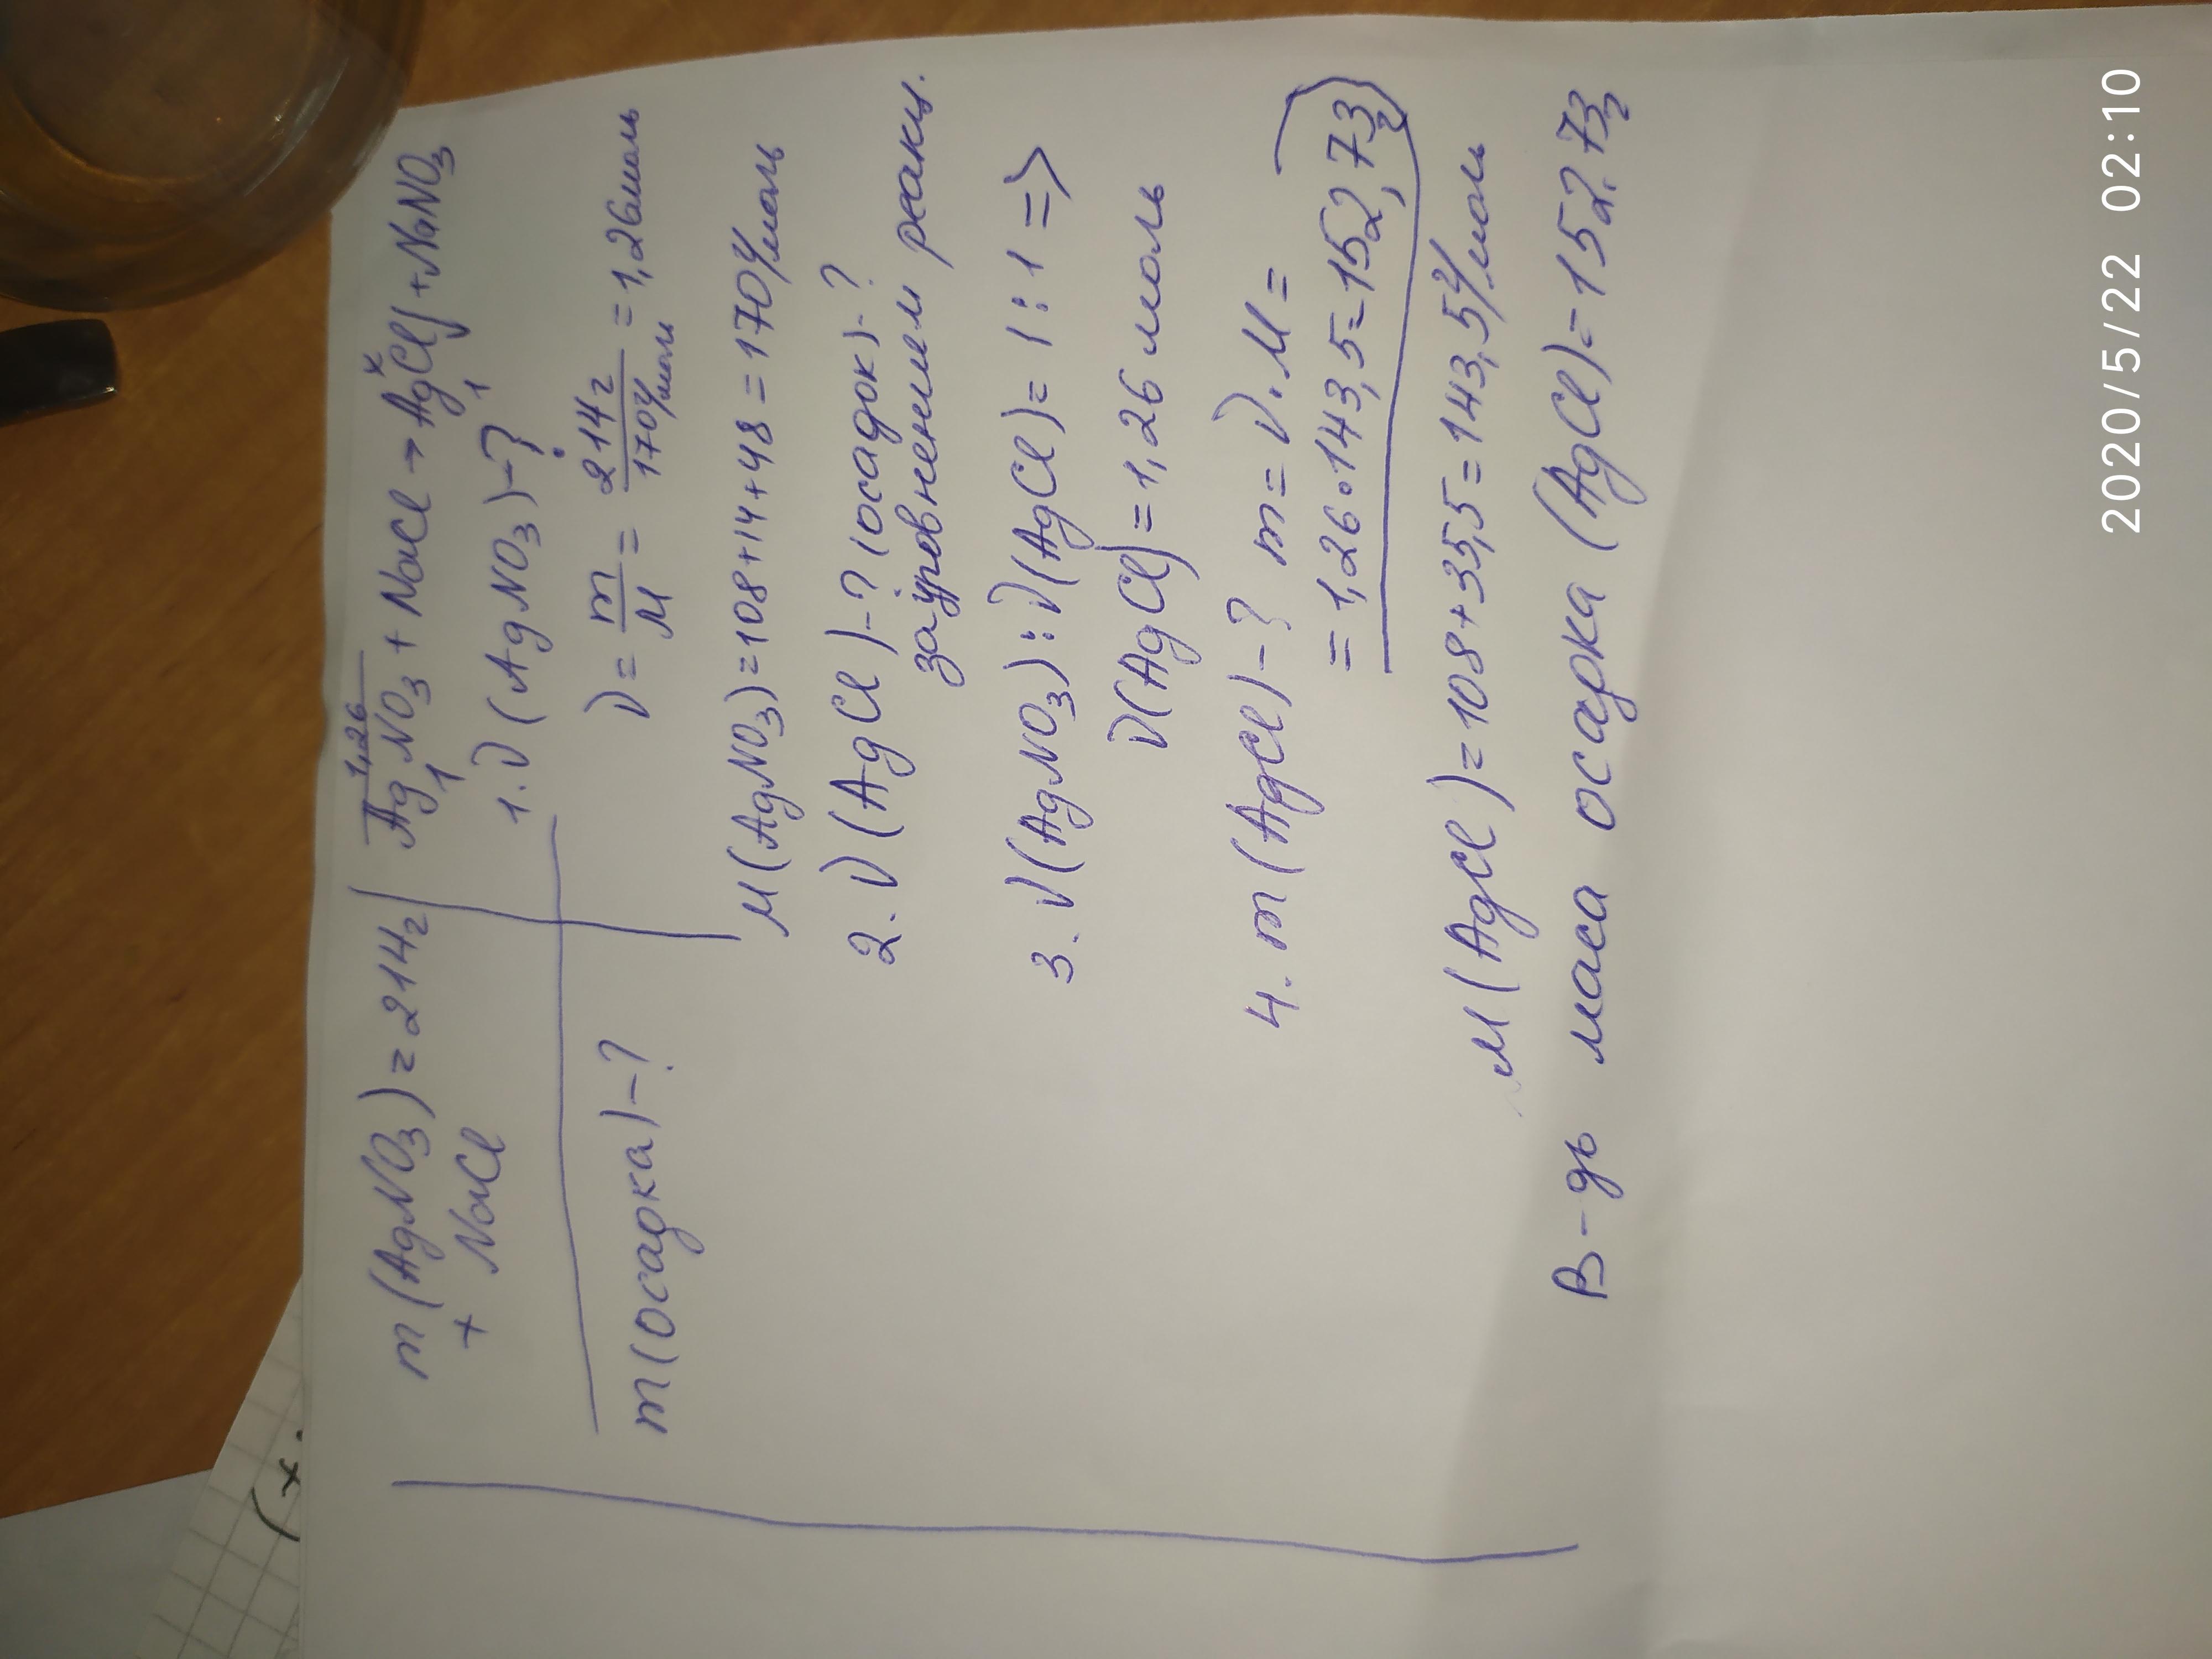 m(AgNO3)=214г
+ NaCl
m(осадка)-?
1,26 x
AgNO3 + NaCl → AgCl↓ + NaNO3
1 1
1. ν(AgNO3)-?
ν = m/M = 214г/170г/моль = 1,26моль
M(AgNO3)=108+14+48=170г/моль
2. ν(AgCl)-? (осадок)-?
за уровненням реакц.
3. ν(AgNO3):ν(AgCl)=1:1 =>
ν(AgCl)=1,26 моль
4. m(AgCl)-? m=ν.M=
=1,26•143,5=152,73г
M(AgCl)=108+35,5=143,5г/моль
В-дь маса осадка (AgCl)=152.73г
(+.
2020/5/22 02:10